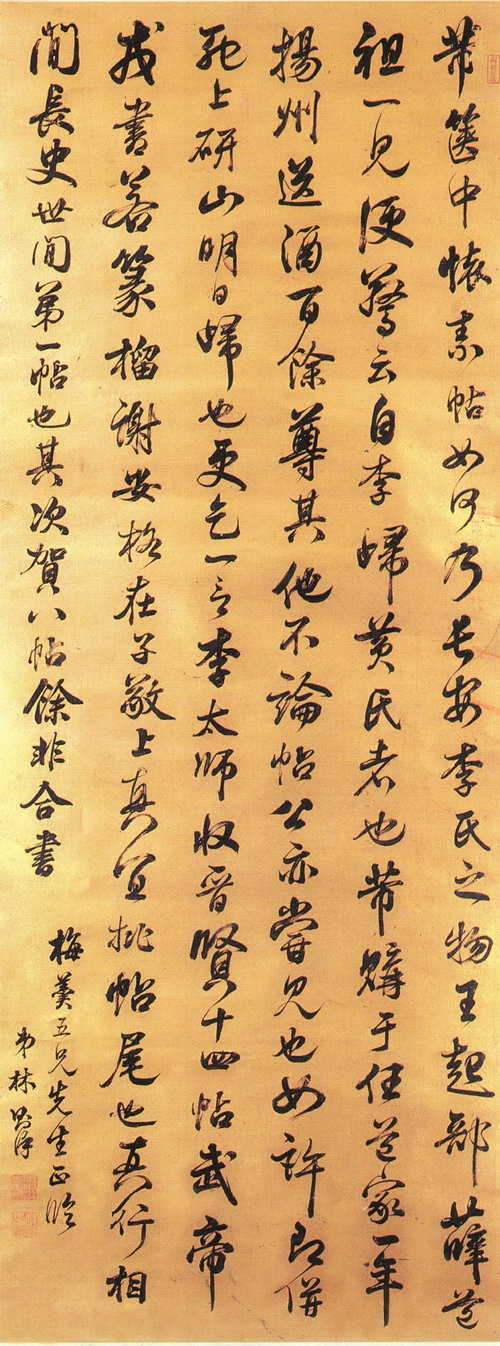 芾篋中懷素帖如何乃長安李氏之物王起部薛道
祖一見便驚云自李歸黃氏者也芾購于任道家一年
揚州送酒百餘尊其他不論帖公亦嘗見也如許即併
馳上研山明日歸也更乞一言李太師收晉賢十四帖武帝
戎書若篆榴謝安格在子敬上真宜批帖尾也真行相
閒長史世間第一帖也其次賀八帖餘非合書
梅羹五兄先生正眎
弟林則徐